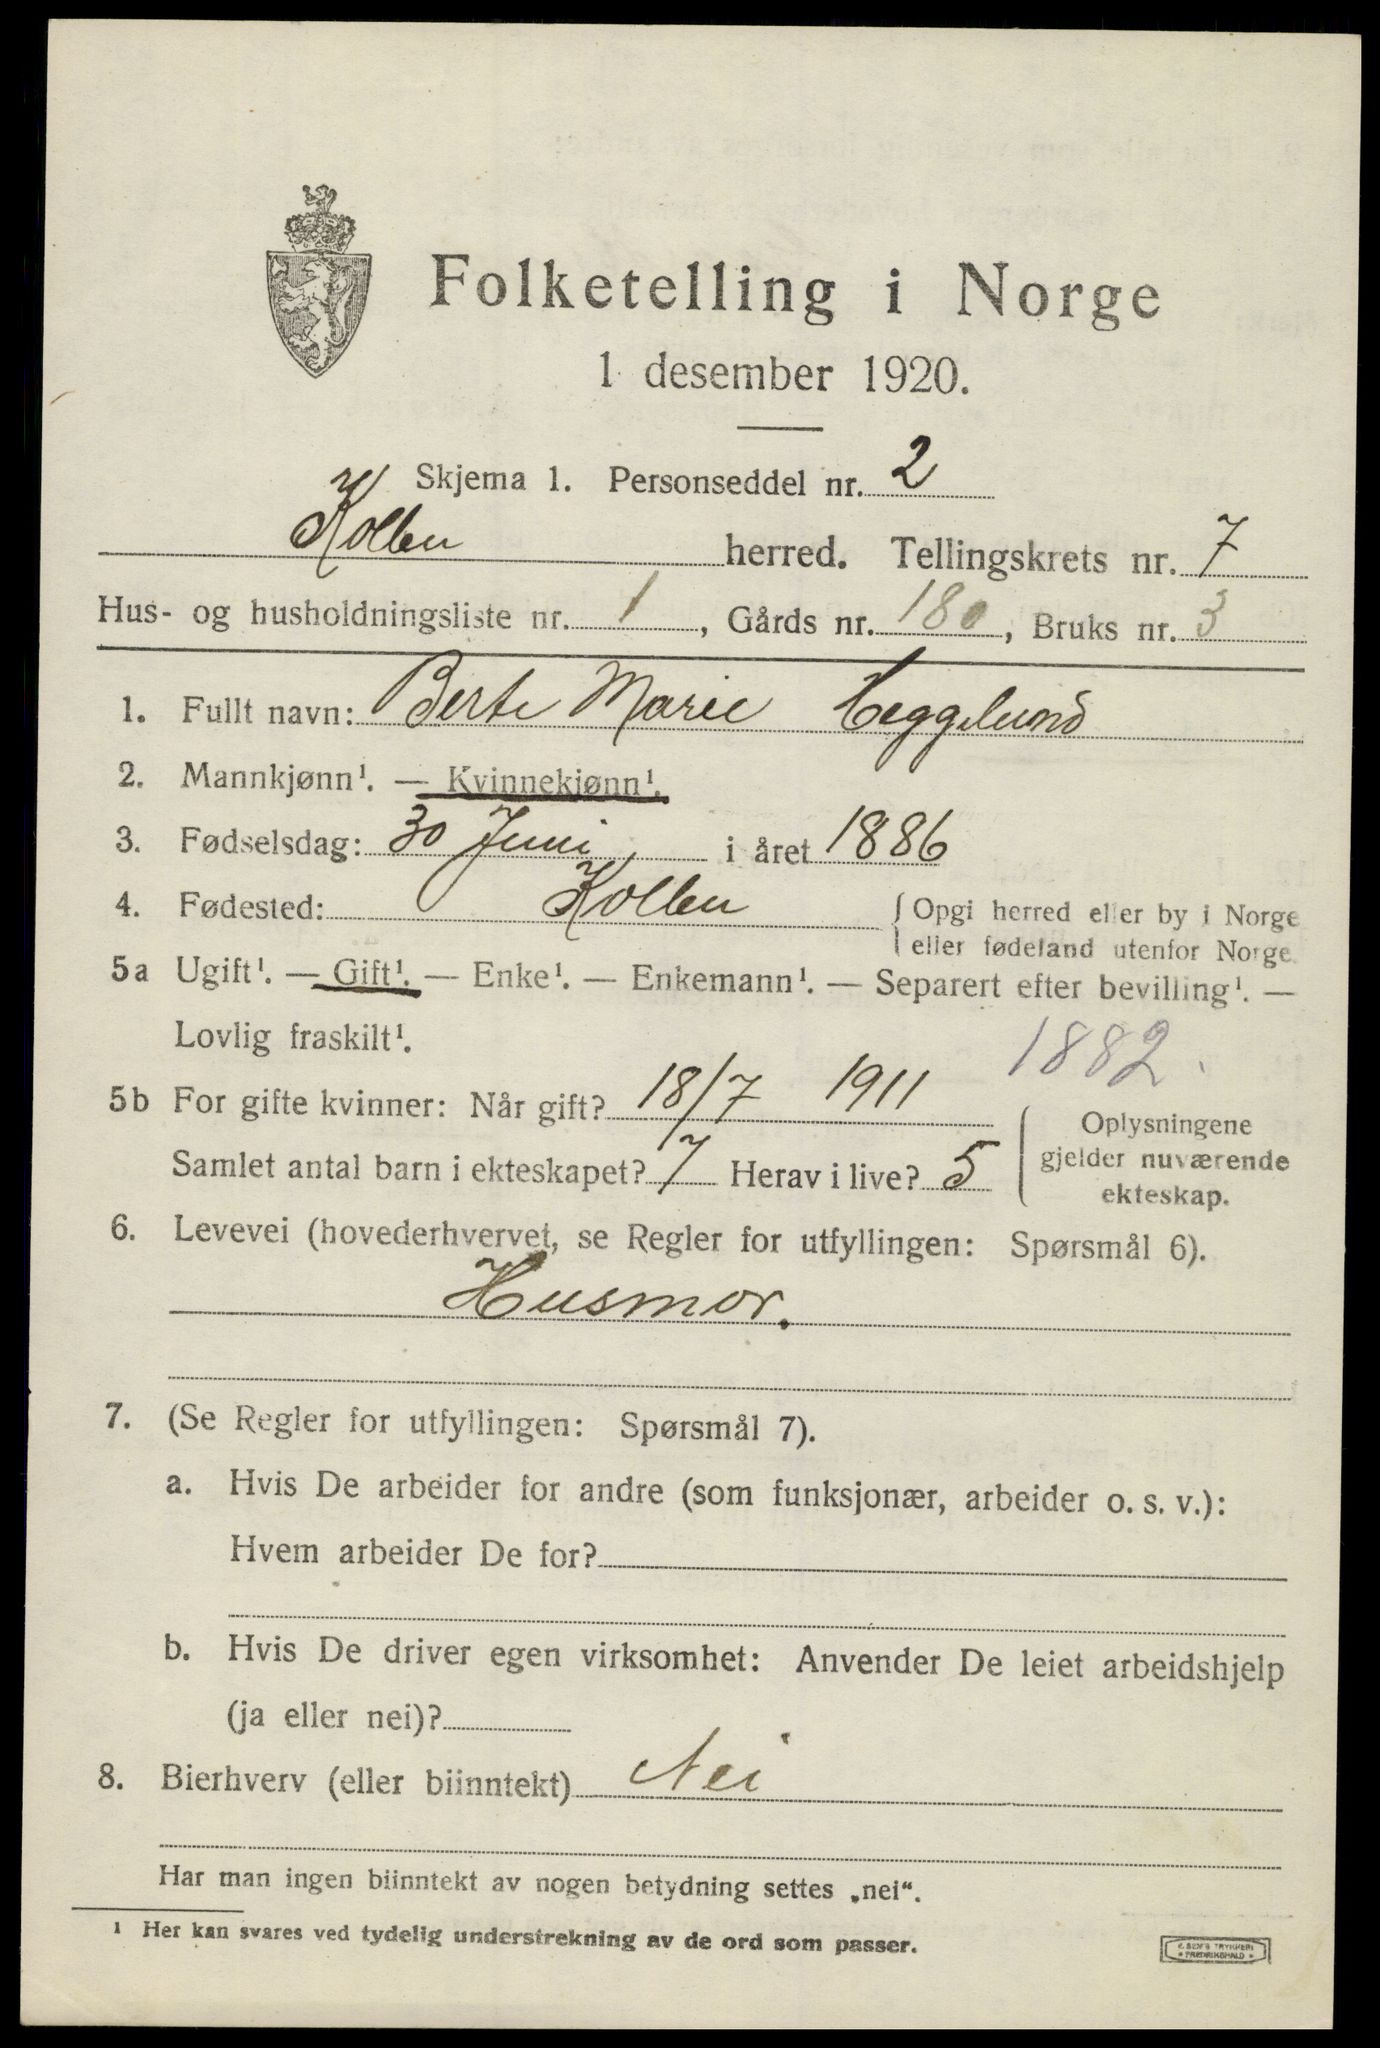 Folketelling i Norge
1 desember 1920.
Skjema 1. Personseddel nr. 2
Kolbu herred. Tellingskrets nr. 7
Hus- og husholdningsliste nr. 1, Gårds nr. 180, Bruks nr. 3
1. Fullt navn: Berte Marie Heggelund
2. Mannkjønn¹. — Kvinnekjønn¹.
3. Fødselsdag: 30 Juni i året 1886
4. Fødested: Kolbu { Opgi herred eller by i Norge
eller fødeland utenfor Norge.
5a Ugift¹. — Gift¹. — Enke¹. — Enkemann¹. — Separert efter bevilling¹. —
Lovlig fraskilt¹. 1882.
5b For gifte kvinner: Når gift? 18/7 1911
Samlet antal barn i ekteskapet? 7 Herav i live? 5
{ Oplysningene
gjelder nuværende
ekteskap.
6. Levevei (hovederhvervet, se Regler for utfyllingen: Spørsmål 6).
Husmor.
7. (Se Regler for utfyllingen: Spørsmål 7).
a. Hvis De arbeider for andre (som funksjonær, arbeider o. s. v.):
Hvem arbeider De for?
b. Hvis De driver egen virksomhet: Anvender De leiet arbeidshjelp
(ja eller nei)?
8. Bierhverv (eller biinntekt) Nei
Har man ingen biinntekt av nogen betydning settes „nei“.
¹ Her kan svares ved tydelig understrekning av de ord som passer.
TRYKKERI
FREDRIKSHALD